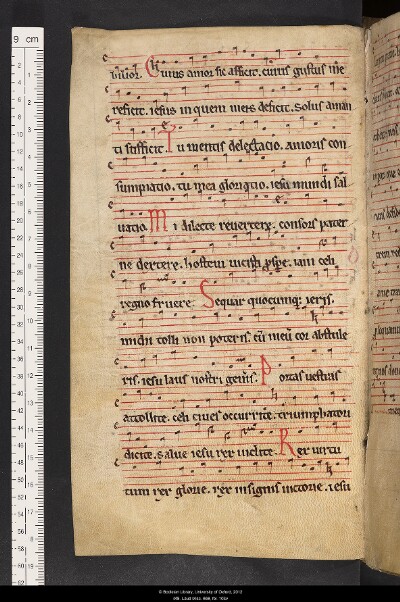 bilior. Cuius amor sic afficit. cuius gustus me
reficit. iesus in quem mens deficit. Solus aman
ti sufficit. Tu mentis delectacio. amoris con
sumpmatio. tu mea gloriatio. iesu mundi sal
uatio. Mi dilecte reuertere. consors pater
ne dextere. hostem uicisti prospere. iam celi
regno fruere. Sequar quocumque ieris.
michi tolli non poteris. cum meum cor abstule
ris. iesu laus nostri generis. Portas uestras
attollite. celi ciues occurrite. triumphatori
dicite. salue iesu rex inclite. Rex uirtu
tum rex glorie. rex insignis uictorie. iesu
© Bodleian Library, University of Oxford, 2013